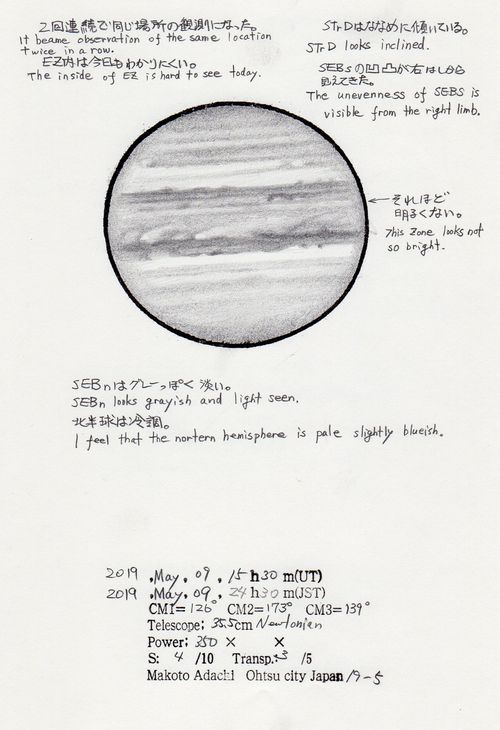 2回連続で同じ場所の観測になった。
It beame observation of the same location
twice in a row.
EZ内は今日もわかりにくい。
The inside of EZ is hard to see today.
STrDはななめに傾いている。
STrD looks inclined.
SEBsの凹凸が右はしから
見えてきた。
The unevenness of SEBS is
visible from the right limb.
それほど
明るくない。
This zone looks not
so bright.
SEBnはグレーっぽく淡い。
SEBn looks grayish and light seen.
北半球は冷調。
I feel that the nortern hemisphere is pale slightly blueish.
2019 .May. 09 , 15 h 30 m(UT)
2019 .May. 09 , 24 h 30 m(JST)
CM1= 126° CM2= 173° CM3= 139°
Telescope; 35.5cm Newtonian
Power; 350 × ×
S: 4 /10 Transp.: 3 /5
Makoto Adachi Ohtsu city Japan 19-5